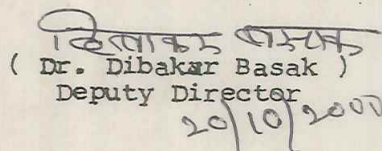 दिवाकर बसाक
( Dr. Dibakar Basak )
Deputy Director
20/10/2000